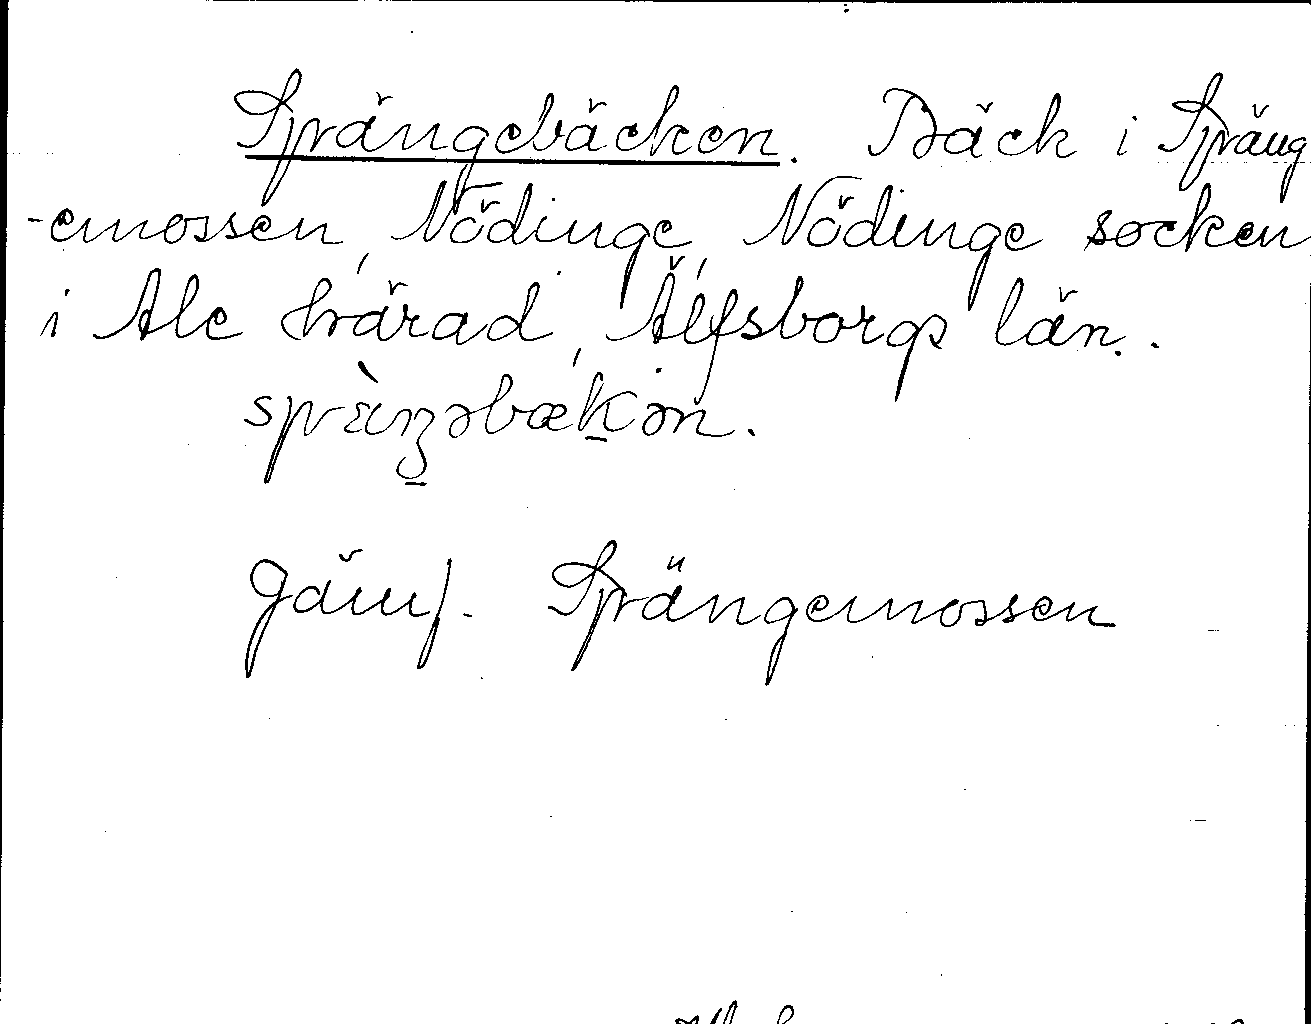 Sprängebäcken. Bäck i Spräng
-emossen, Nödinge, Nödinge socken
i Ale härad, Älfsborgs län.
sprὰŋəbækən.
Jämf. Sprängemossen